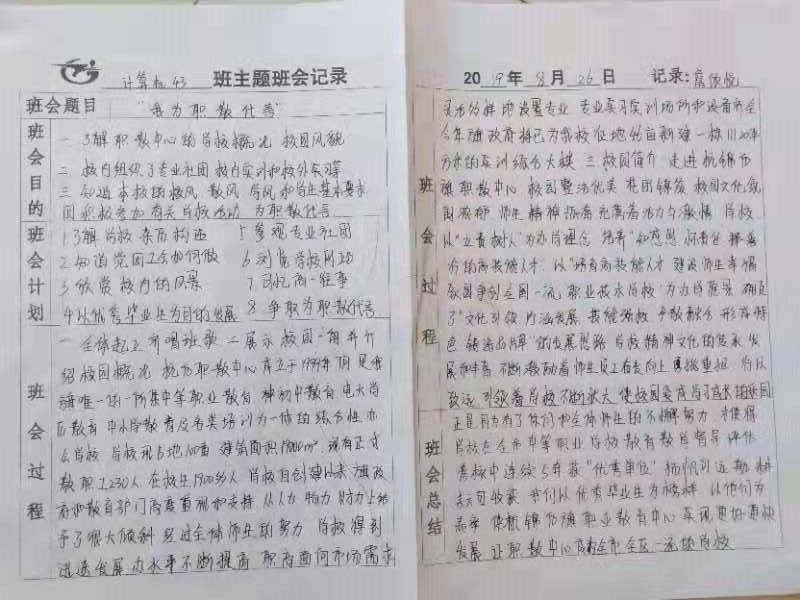 计算机43 班主题班会记录
班会题目 "我为职教代言"
班会目的
一 了解职教中心的学校概况 校园风貌
二 校内组织了专业社团 校内实训和校外见习等
三 知道本校的校风 教风 学风 和学生基本要求
积极参加有关学校活动 为职教代言
班会计划
1 了解学校 亲历构造 5 参观专业社团
2 知道党团工会如何做 6 浏览学校网站
3 欣赏 校内的风景 7 回忆高一往事
4 以优秀毕业生为目的发展 8 争取为职教代言
班会过程
一 全体起立 齐唱班歌 二 展示 校园一角 并介
绍校园概况 杭力职教中心成立于1999年 前是我
旗唯一的一所集中等职业教育 初中教育 电大学
历教育 中小学教育及各类培训为一体的综合性办
公学校 学校现占地100亩 建筑面积 现有正式
教职工230人 在校生1900多人 学校自创建以来 旗政
府和教育部门高度重视和支持 从人力 物力 财力上给
予了很大倾斜 经过全体师生的努力 学校得到
迅速发展 办水平不断提高 职高面向市场需求
2019年8月26日 记录:
班会过程
灵活分解地设置专业 专业实习实训场所和设备齐全
今年旗政府将已为我校征地 新建一栋11120平
方米的实训综合大楼 三 校园简介 走进杭锦
旗职教中心 校园整洁优美 花团锦簇 校园文化氛
围浓郁 师生精神扬着充满着活力与激情 学校
以"立责树人"为办学理念 培养"知感恩
的高技能人才" 以"培育高技能人才 建设师生幸福
家园 争创全国一流 职业技术学校"为办学愿景 确定
了"文化引领 内涵发展 技能强校 产教融合 形成特
色 铸造品牌"的发展思路 学校精神文化的传承 发
展和丰富 不断激励着师生员工奋发向上 勇挑重担
致远 引领着学校不断强大 使校园变成学习成长的乐园
班会总结
正是因为有了领导和全体师生的不懈努力 才使得
学校在全市中等职业学校教育教学督导评估
考核中连续5年获"优秀单位" 扬帆到远航 耕
耘可收获 我们以优秀毕业生为榜样 以他们为
志学 使杭锦旗职业教育中心实现更好更快
发展 让职教中心成为全市全区一流的学校